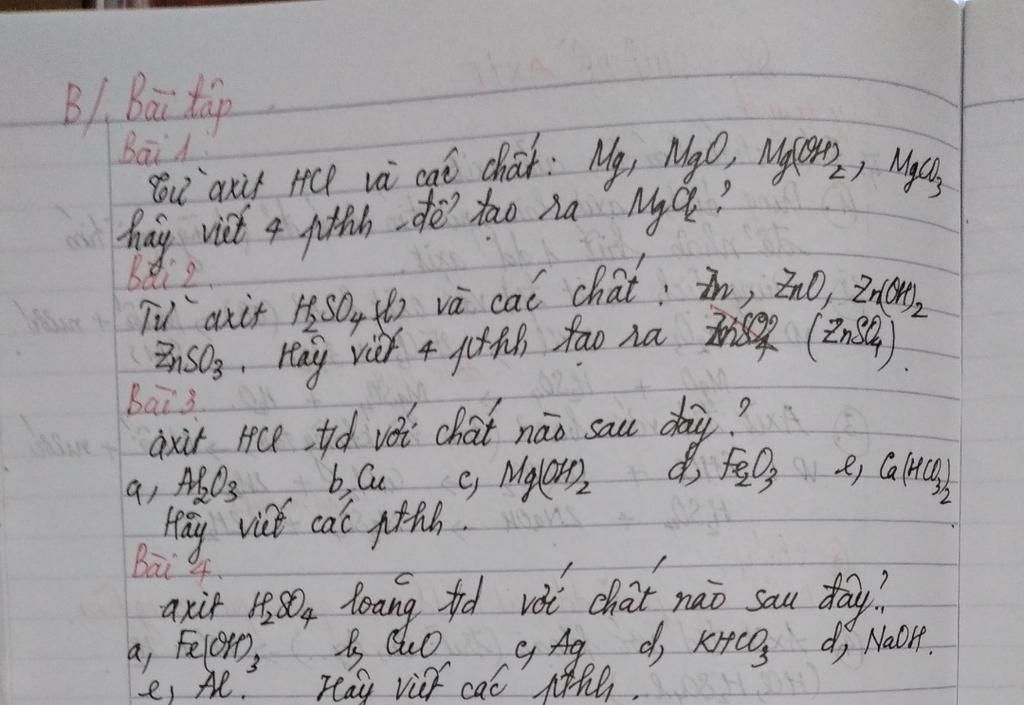 B/. Bài tập
Bài 1
Từ axit HCl và các chất: Mg, MgO, Mg(OH)₂, MgCO₃
hãy viết 4 pthh để tạo ra MgCl₂?
Bài 2.
Từ axit H₂SO₄(l) và các chất: Zn, ZnO, Zn(OH)₂
ZnSO₃. Hãy viết 4 pthh tạo ra (ZnSO₄)
Bài 3.
axit HCl t/d với chất nào sau đây?
a, Al₂O₃ b, Cu c, Mg(OH)₂ d, Fe₂O₃ e, Ca(HCO₃)₂
Hãy viết các pthh.
Bài 4.
axit H₂SO₄ loãng t/d với chất nào sau đây?
a, Fe(OH)₃ b, CuO c, Ag d, KHCO₃ d, NaOH.
e, Al. Hãy viết các pthh.